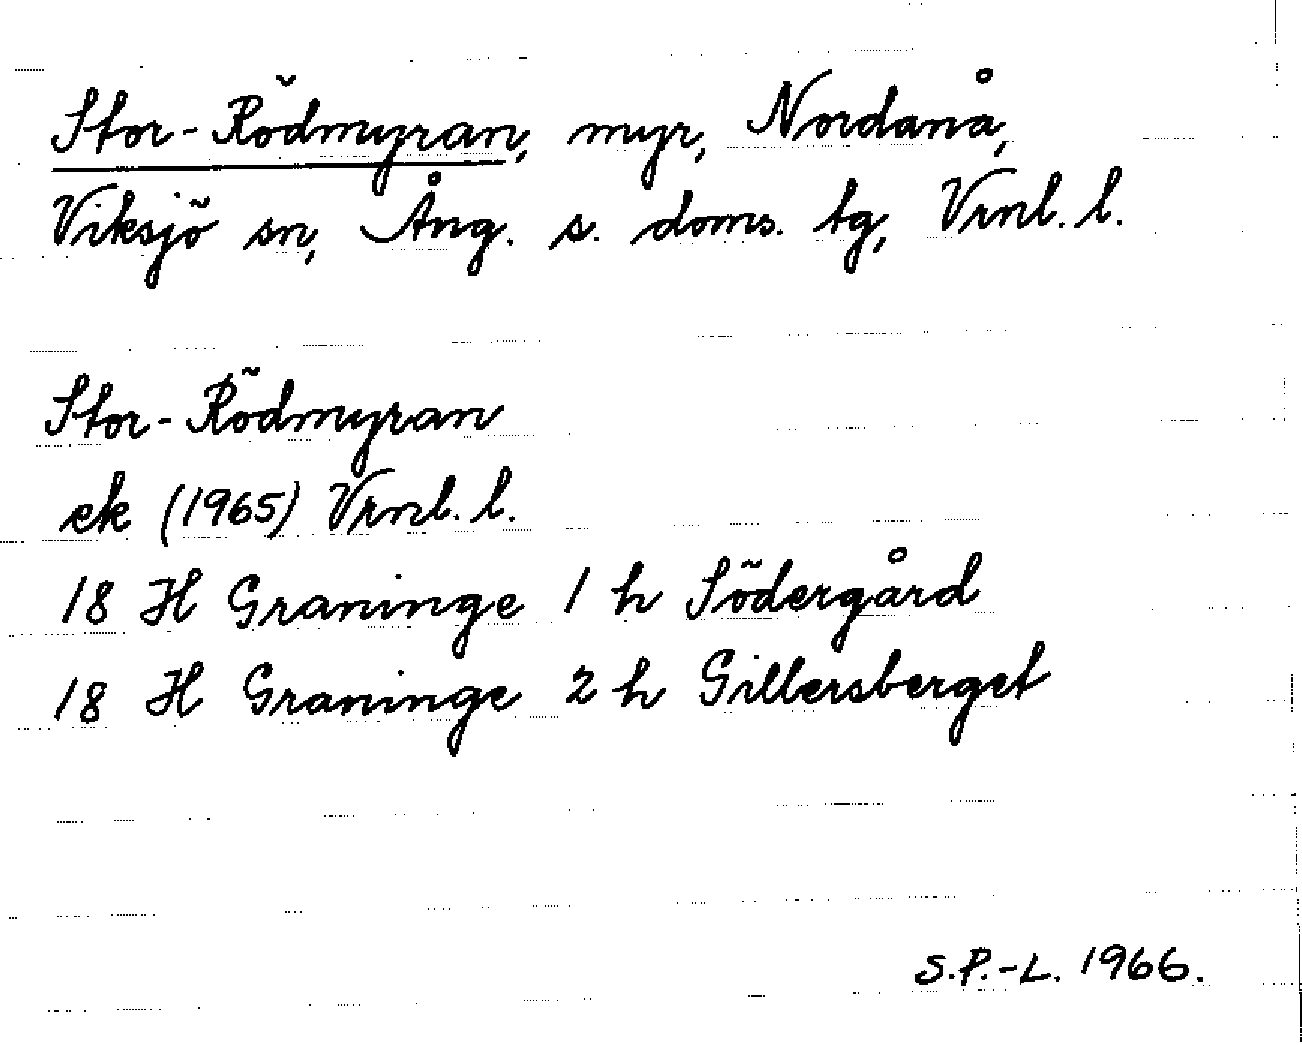 Stor-Rödmyran, myr, Nordanå,
Viksjö sn, Ång. s. doms. tg, Vrnl. l.
Stor-Rödmyran
ek (1965) Vrnl. l.
18 H Graninge 1 h Södergård
18 H Graninge 2 h Gillersberget
S.P.-L. 1966.